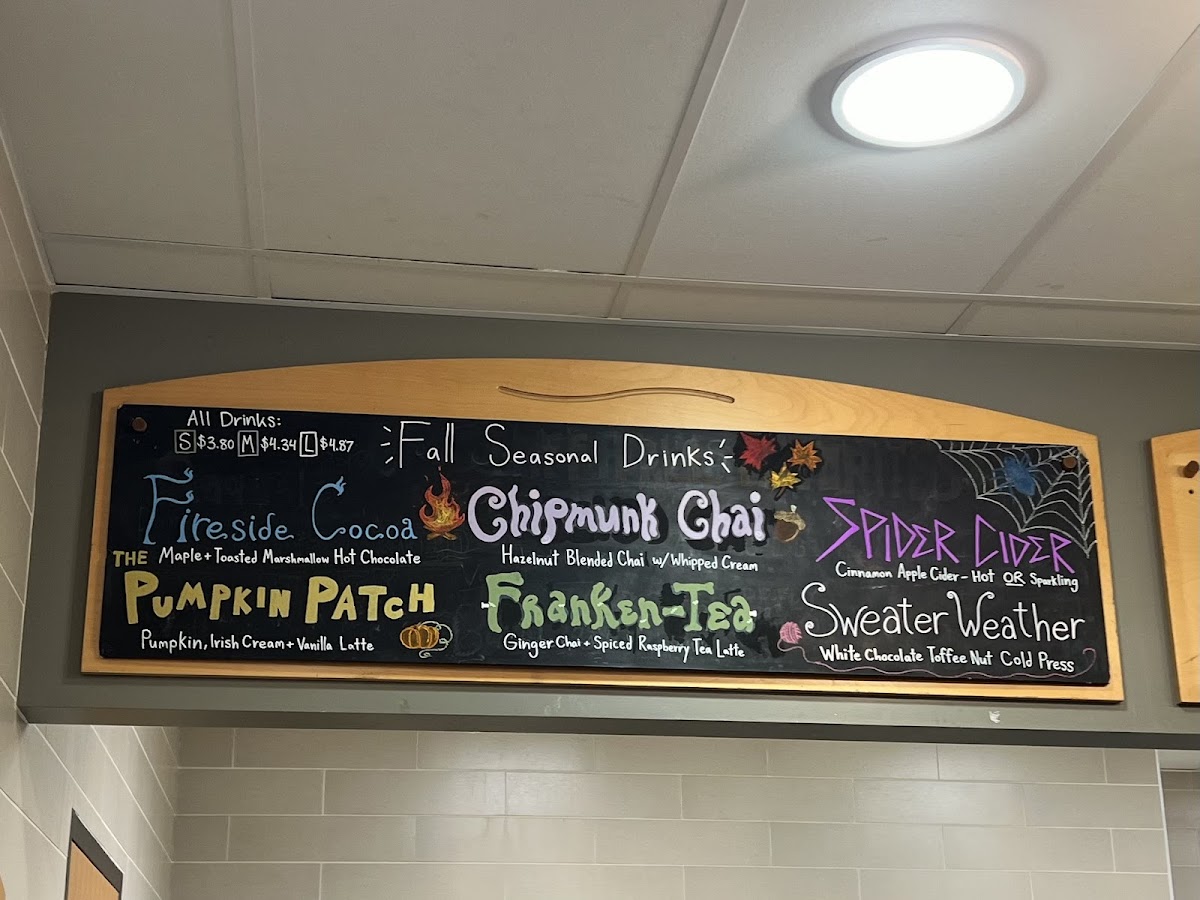 All Drinks:
S $3.80 M $4.34 L $4.87
Fall Seasonal Drinks
Fireside Cocoa
Maple + Toasted Marshmallow Hot Chocolate
THE
PUMPKIN PATCH
Pumpkin, Irish Cream + Vanilla Latte
Chipmunk Chai
Hazelnut Blended Chai w/ Whipped Cream
Franken-Tea
Ginger Chai + Spiced Raspberry Tea Latte
SPIDER CIDER
Cinnamon Apple Cider - Hot OR Sparkling
Sweater Weather
White Chocolate Toffee Nut Cold Press